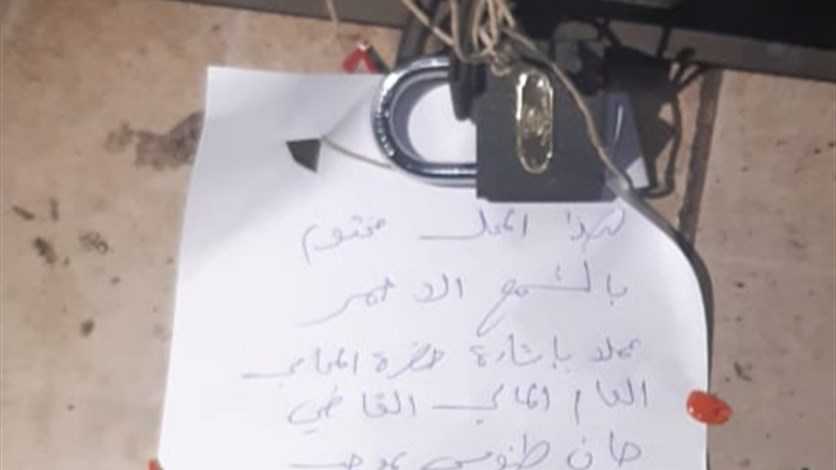 هذا المحل مختوم
بالشمع الاحمر
عملا بإشارة حضرة المحامي
العام المالي القاضي
جان طنوس بموجب